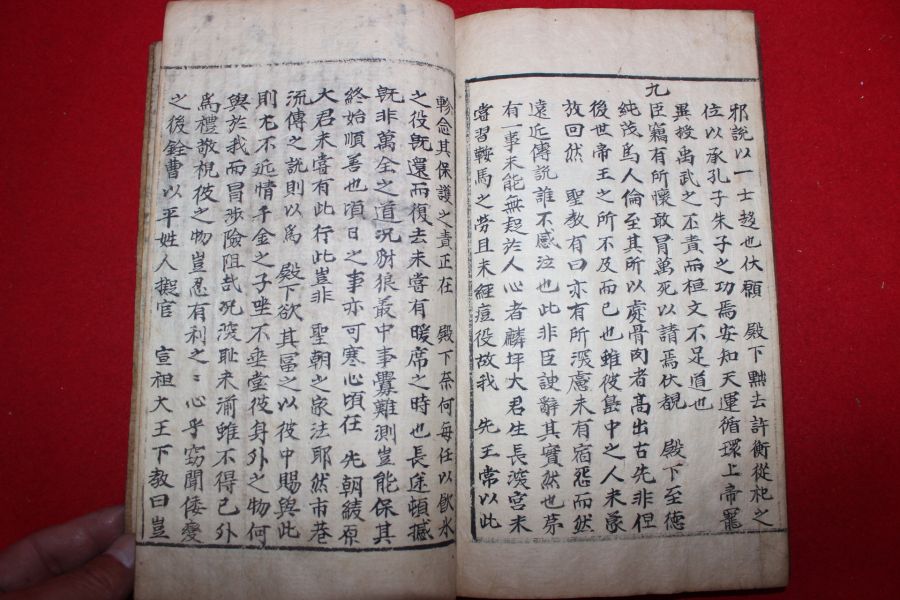 邪說以一士趍也伏願　殿下黜去許衡從祀之
位以承孔子朱子之功焉安知天運循環上帝寵
異授禹武之丕責而桓文不足道也
九
臣竊有所懷敢冒萬死以請焉伏覩　殿下至德
純茂爲人倫至其所以處骨肉者高出古先非但
後世帝王之所不及而已也雖彼島中之人来蒙
放回然　聖敎有曰亦有所深慮未有宿怨而然
遠近傳說誰不感泣也此非臣諛辭其實然也苐
有一事未能無起於人心者麟坪大君生長深宮未
嘗習鞍馬之勞且未經痘役故我　先王常以此
軫念其保護之責正在　殿下奈何每任以飮氷
之役旣還而復去未嘗有暖席之時也長途頓撼
旣非萬全之道况豺狼最中事釁難測豈能保其
終始順善也頃日之事亦可寒心頃在　先朝綾原
大君未嘗有此行此豈非　聖朝之家法耶然市巷
流傳之說則以爲　殿下欲其冨之以彼中賜與此
則尤不近情千金之子坐不垂堂彼身外之物何
與於我而冒涉險阻哉况深耻未湔雖不得已外
爲禮敬視彼之物豈忍有利之之心乎竊聞倭變
之後銓曹以平姓人擬官　宣祖大王下敎曰豈